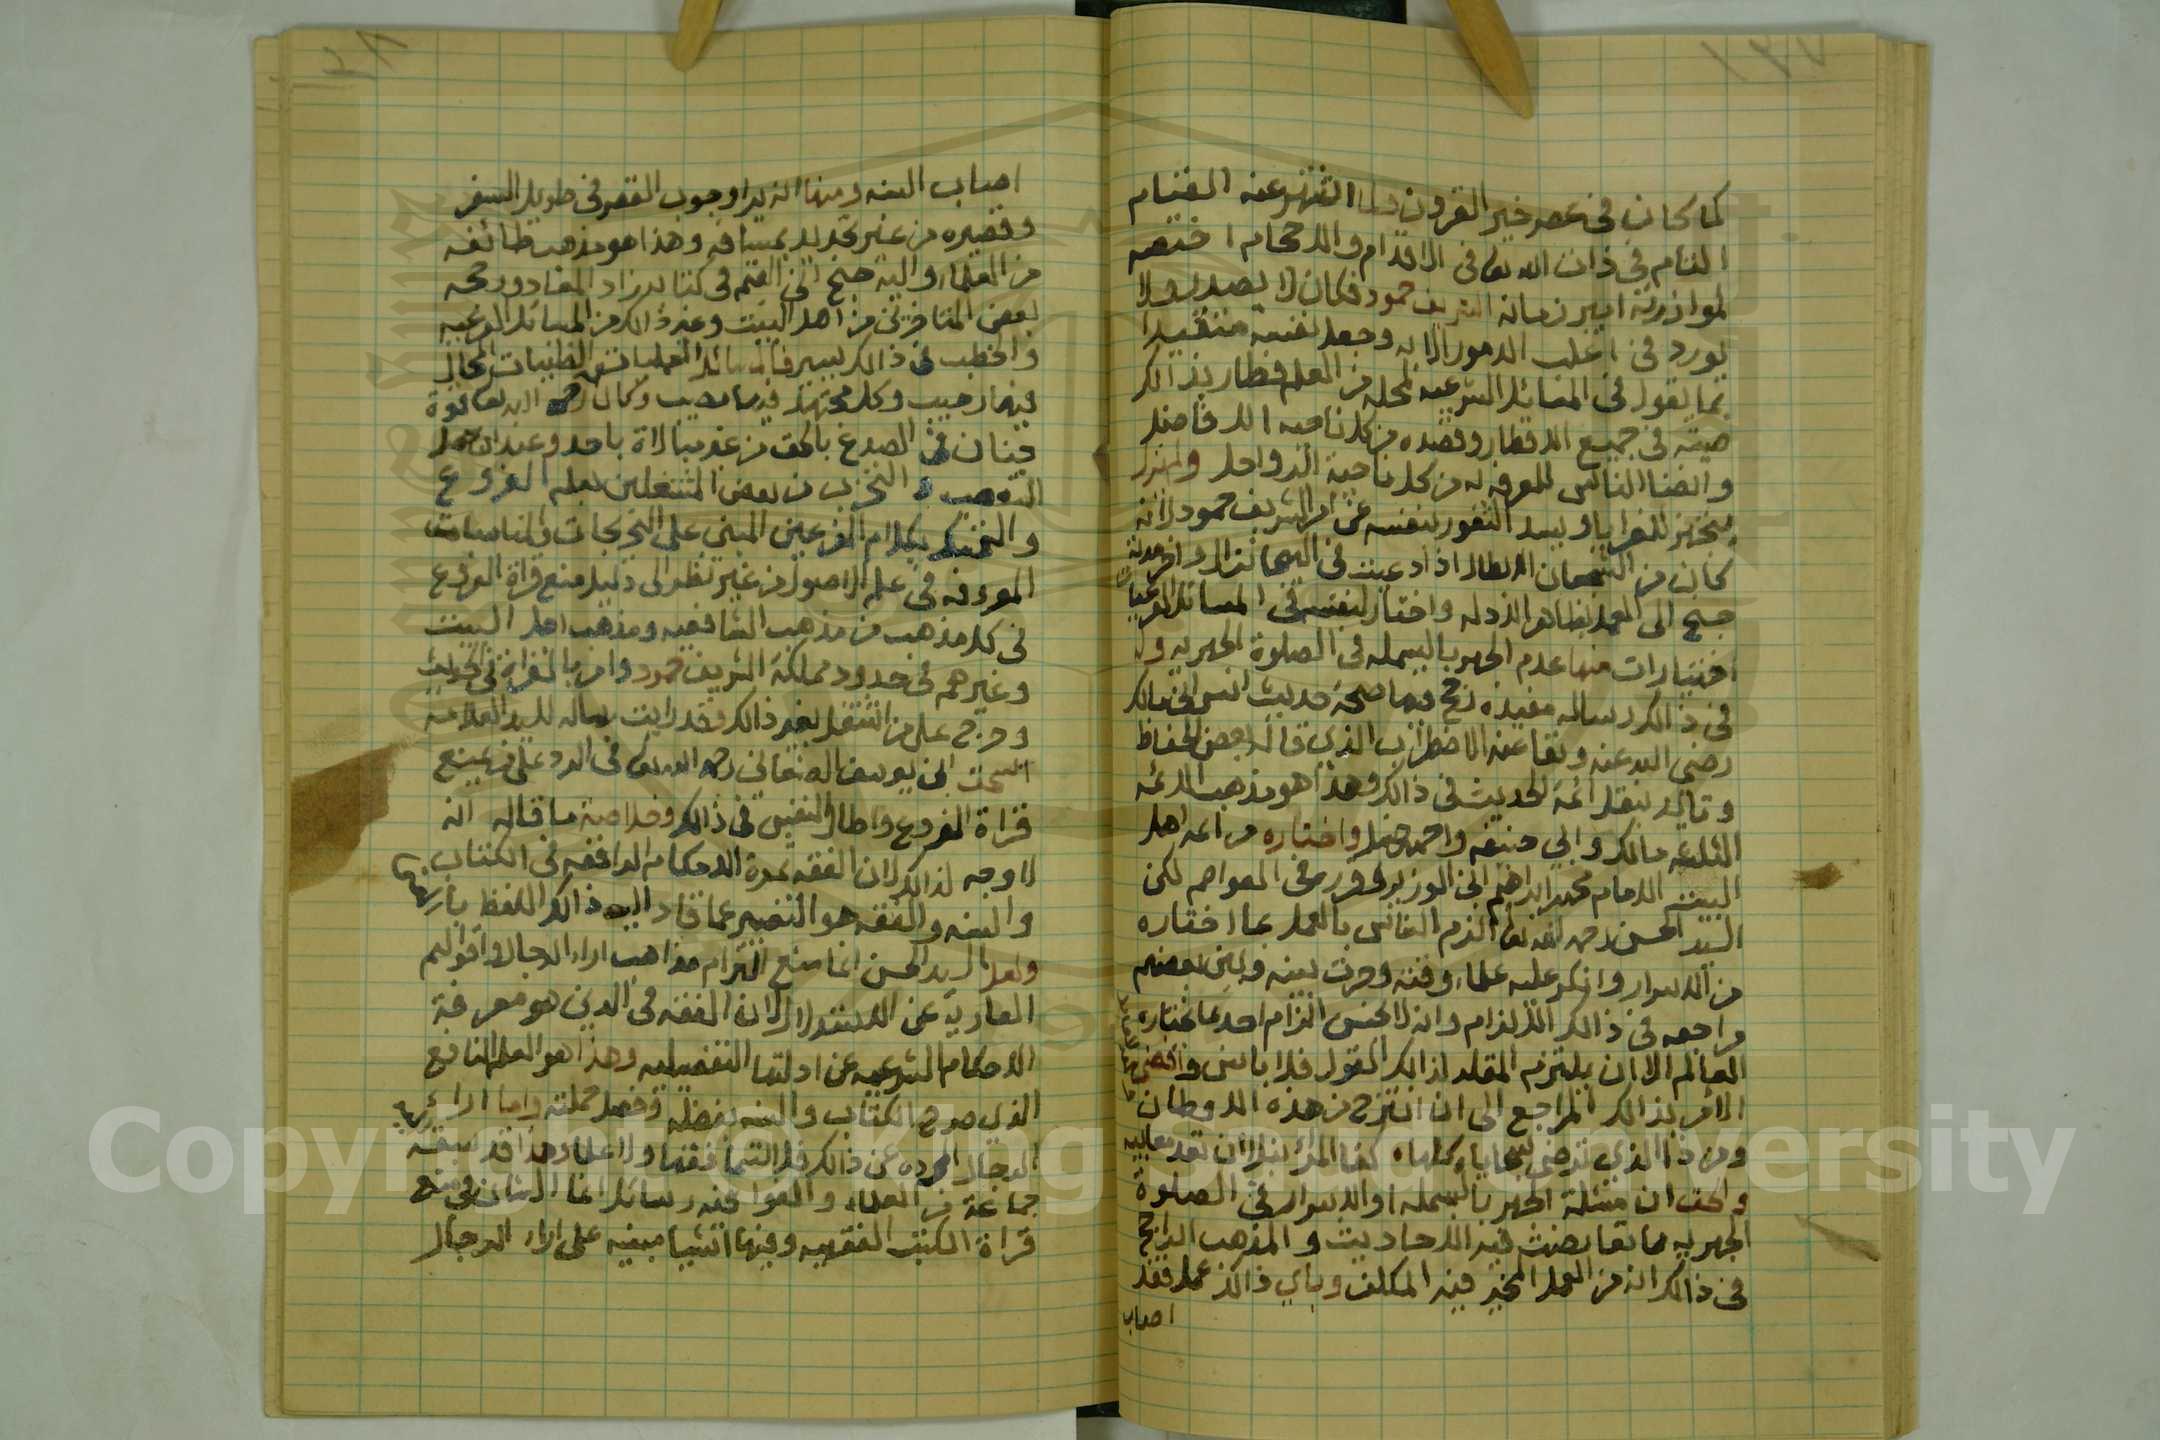 ١٣٧
كما كان في عصر خير القرون ولما اشتهر عنه القيام
التام في ذات الله تعالى في الاقدام والاحجام اختصه
لموازرته امير زمانه الشريف حمود فكان لا يصدر ولا
يورد في اغلب الامور الا به وجعل نفسه متقيدا
بما يقول في المسائل الشرعية لمحله من العلم فطار بذالك
صيته في جميع الاقطار وقصده من كل ناحيه الافاضل
وانضا الناس للمعرفه له من كل ناحية الرواحل
بتجهيز للغزايا وسد الثغور بنفسه عن امر الشريف حمود لانه
كان من الشجعان الابطال اذا دعيت في الهيجا نزال
جنح الى العمل بظاهر الادله واختار لنفسه في المسائل الفرعيات
اختيارات منها عدم الجهر بالبسمله في الصلوة الجهريه وله
في ذالك رساله مفيده رجح فيها صحة حديث انس ابن مالك
رضي الله عنه ونفا عنه الاضطراب الذي قاله بعض الحفاظ
وتايد بنقل ائمة الحديث في ذالك وهذا هو مذهب الائمه
الثلاثه مالك وابي حنيفه واحمد بن حنبل واختاره من ائمه اهل
البيت الامام محمد ابن ابراهيم ابن الوزير وقرره في العواصم لكن
السيد الحسن رحمه الله تعالى الزم الناس بالعمل بما اختاره
من الاسرار وانكر عليه علماء وقته وجرت بينه وبين بعضهم
مراجعه في ذالك الالزام وانه لا يحسن الزام احد بما يختاره
العالم الا ان يلتزم المقلد لذالك القول فلا باس وافضى
الامر بذالك المراجع الى ان انتزح من هذه الاوطان
ومن ذا الذي ترضى سجاياه كلها كفا المرء نبلا ان تعد معايبه
والحق ان مسئلة الجهر بالبسمله او الاسرار في الصلوة
الجهريه مما تعارضت فيه الاحاديث والمذهب الراجح
في ذالك انه من العمل المخير فيه المكلف وباي ذالك عمل فقد
اصاب
١٣٨
اصاب السنه ومنها انه يرا وجوب القصر في طويل السفر
وقصيره من غير تحديد بمسافه وهذا هو مذهب طائفه
من العلماء واليه جنح ابن القيم في كتابه زاد المعاد ورجحه
بعض المتاخرين من اهل البيت وغير ذالك من المسائل الفرعيه
والخطب في ذالك يسير فالمسائل العمليات الظنيات المجال
فيها رحيب وكل مجتهد فيها مصيب وكان رحمه الله تعالى قوة
جنان في الصدع بالحق من غير مبالاة باحد وعند ان حصل
التعصب والتحزب من بعض المشتغلين بعلم الفروع
والتمسك بكلام المفرعين المبني على التخريجات والمناسبات
المعروفه في علم الاصول من غير نظر الى دليل منع قراة الفروع
في كل مذهب من مذهب الشافعيه ومذهب اهل البيت
وغيرهم في حدود مملكة الشريف حمود وامر بالقراة في الحديث
وحرج على من اشتغل بغير ذالك وقد رايت رساله للسيد العلامه
اسحق ابن يوسف الصنعاني رحمه الله تعالى في الرد على من يمنع
قراة الفروع واطال النفس في ذالك وخلاصة ما قاله انه
لا وجه لذالك لان الفقه ثمرة الاحكام الواقعه في الكتاب
والسنه والفقه هو التفسير عما قاد اليه ذالك اللفظ
ولعل السيد الحسن انما منع التزام مذاهب اراء الرجال واقوالهم
العاريه عن الاستدلال لان الفقه في الدين هو معرفة
الاحكام الشرعيه عن ادلتها التفصيليه وهذا هو العلم النافع
الذي صرح الكتاب والسنه بفضله وفضل حملته واما اراء
الرجال المجرده عن ذالك فلا تسما فقها ولا علما وهذا قد سبقه
جماعة من العلماء والفوا فيه رسائل انما الشان في منع
قراة الكتب الفقهيه وفيها اشيا مبنيه على اراء الرجال
Copyright © King Saud University